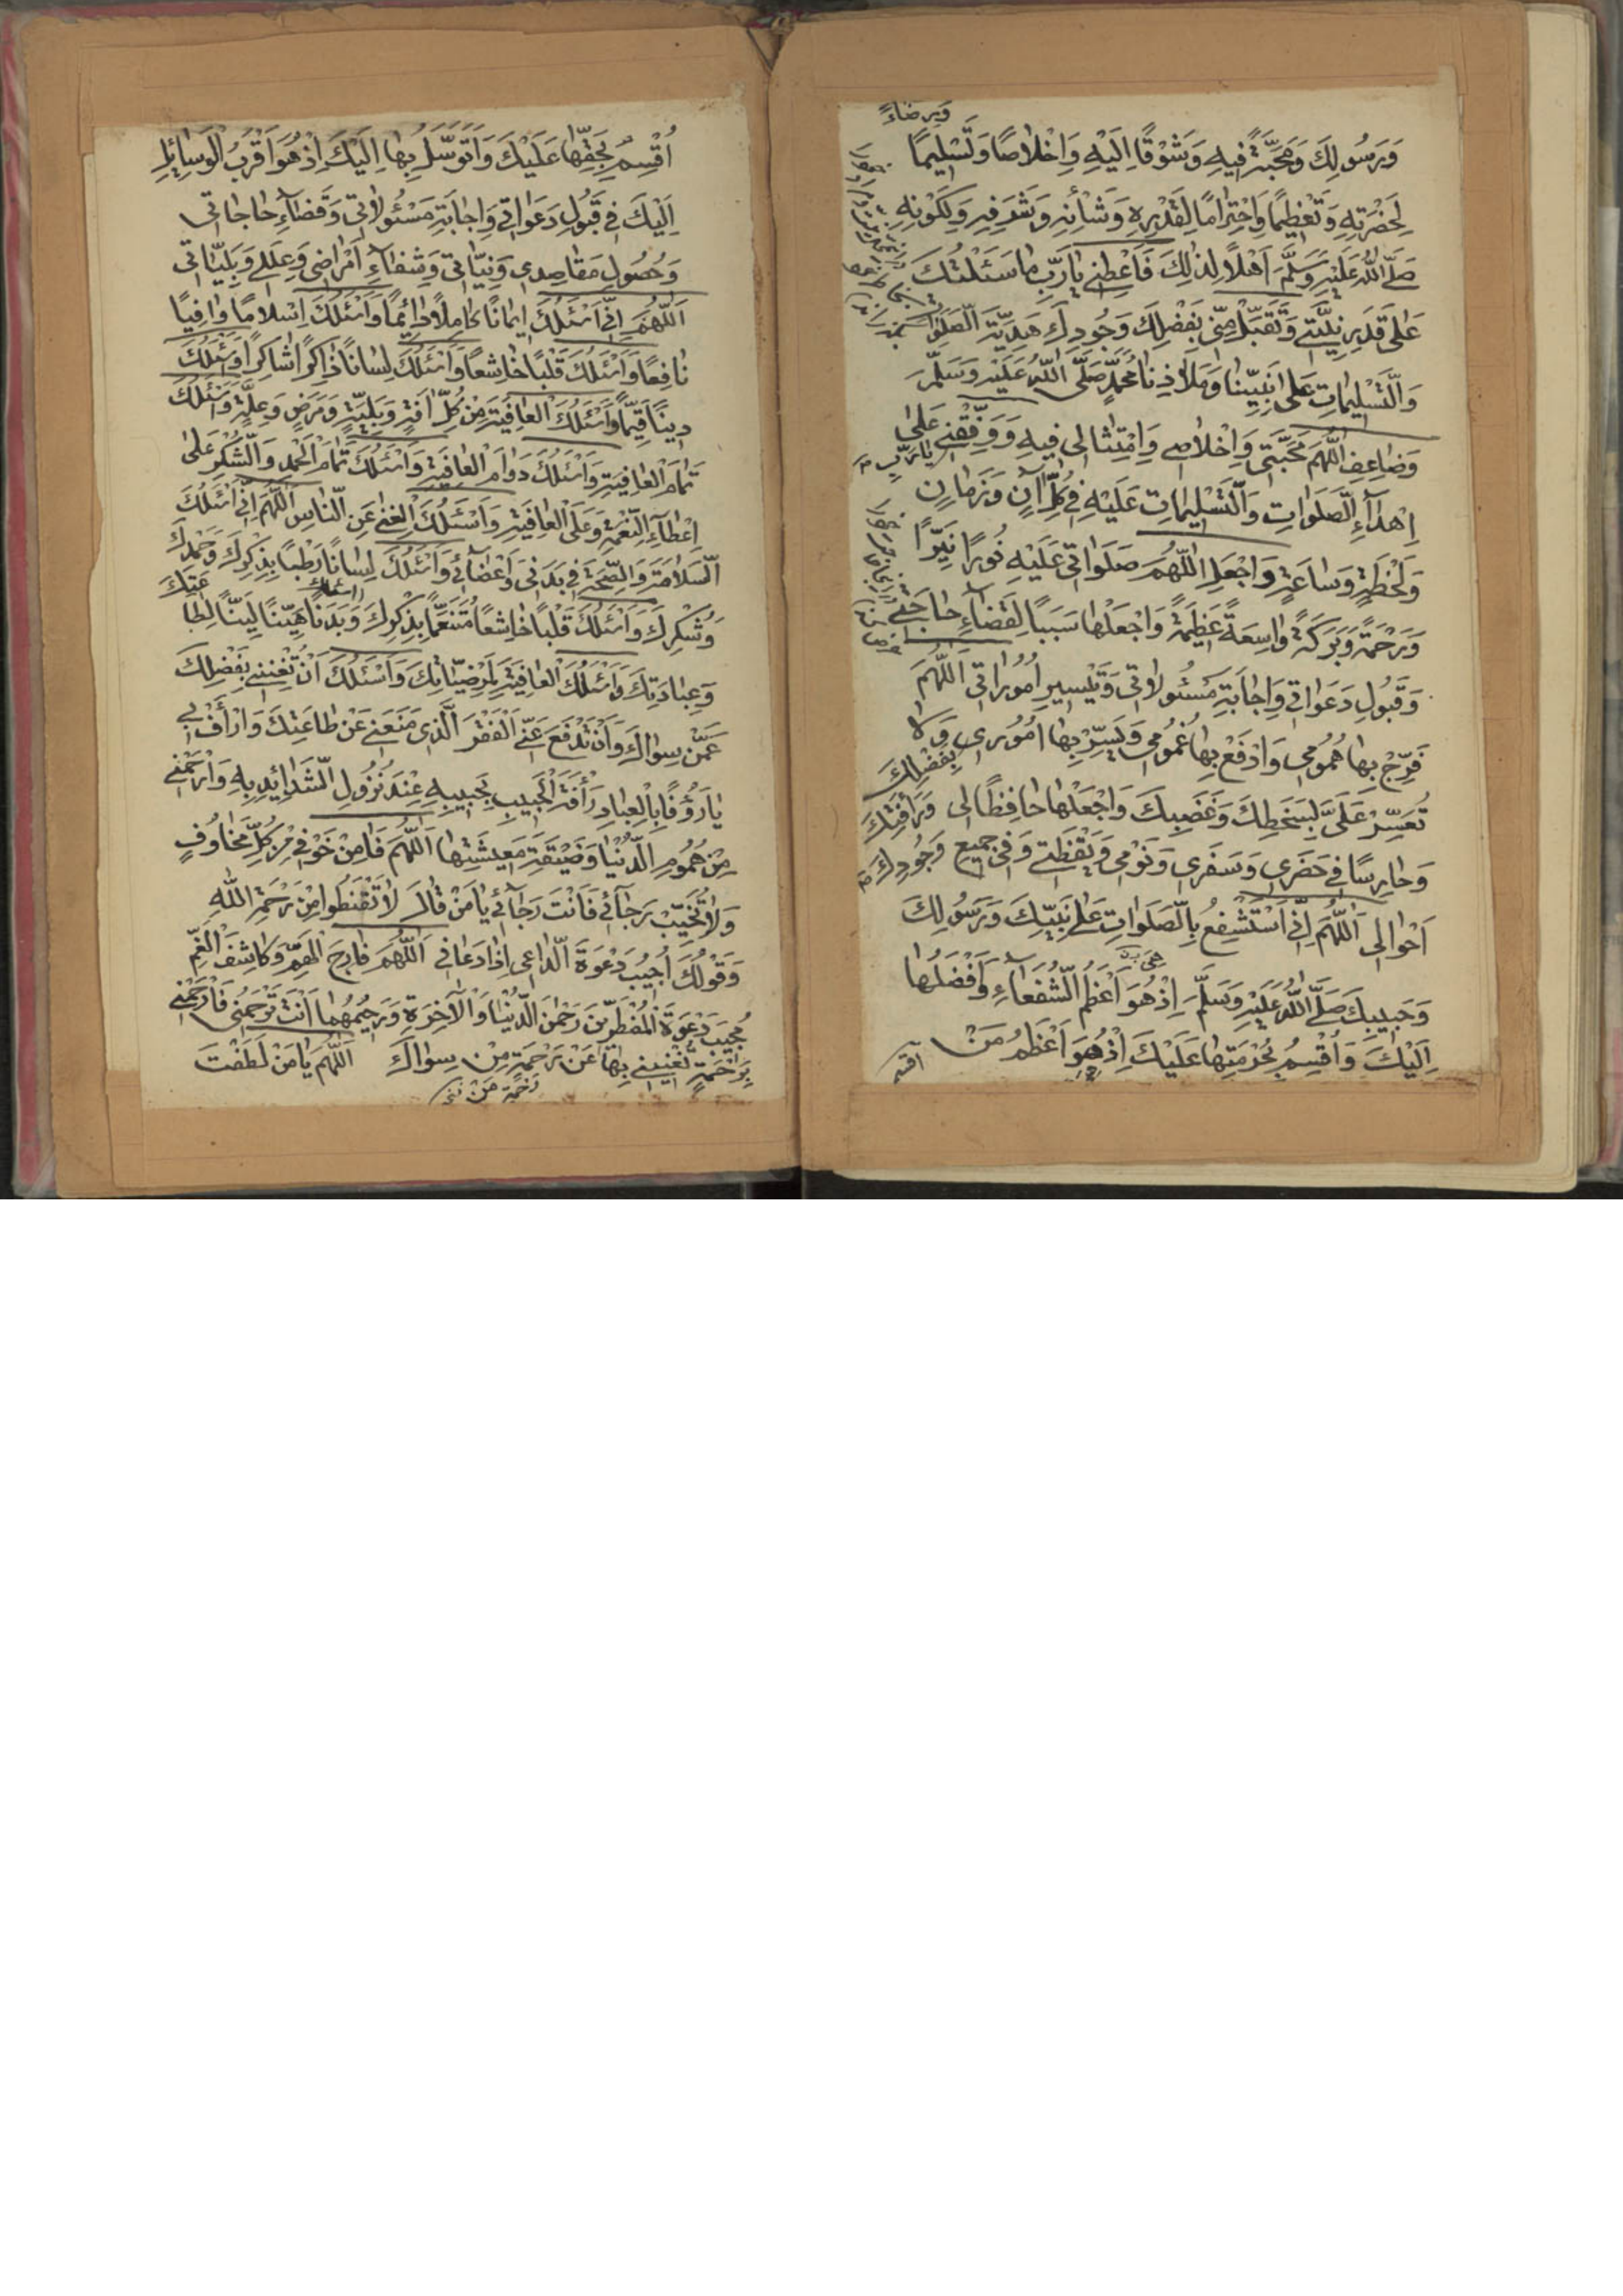 وَبِرضاءً
وَرَسُولِكَ وَمَحَبَّةً فِيهِ وَشَوْقًا اِلَيْهِ وَاِخْلاصًا وَتَسْلِيمًا
لِحَضْرَتِهِ وَتَعْظِيمًا وَاِحْتِرامًا لِقَدْرِهِ وَشَأْنِهِ وَشَرَفِهِ وَلِكَوْنِهِ
صَلَّى اللّٰهُ عَلَيْهِ وَسَلَّمَ اَهْلاً لِذٰلِكَ فَاَعْطِنِي يٰا رَبِّ ما سَئَلْتُكَ
عَلىٰ قَدْرِ نِيَّتِي وَتَقَبَّلْ مِنِّي بِفَضْلِكَ وَجُودِكَ هَدِيَّةَ الصَّلَوٰاتِ
وَالتَّسْلِيماتِ عَلىٰ نَبِيِّنا وَمَلاٰذِنا مُحَمَّدٍ صَلَّى اللّٰهُ عَلَيْهِ وَسَلَّمَ
وَضاعِفِ اللّٰهُمَّ مَحَبَّتِي وَاِخْلاٰصِي وَاِمْتِثالِي فِيهِ وَوَفِّقْنِي عَلىٰ
يا رَبِّ
اِهْدآءِ الصَّلَوٰاتِ وَالتَّسْلِيماتِ عَلَيْهِ فِي كُلِّ آنٍ وَزَمانٍ
وَلَحْظَةٍ وَساعَةٍ وَاجْعَلِ اللّٰهُمَّ صَلَوٰاتِي عَلَيْهِ نُورًا نَيِّرًا
وَرَحْمَةً وَبَرَكَةً وٰاسِعَةً عَظِيمَةً وَاجْعَلْها سَبَبًا لِقَضآءِ حاجَتِي
وَقَبُولِ دَعَوٰاتِي وَاِجابَةِ مَسْئُولاٰتِي وَتَيْسِيرِ اُمُورٰاتِي اللّٰهُمَّ
فَرِّجْ بِها هُمُومِي وَادْفَعْ بِها غُمُومِي وَيَسِّرْ بِها اُمُورِي وَلا
بِفَضْلِكَ
تُعَسِّرْ عَلَيَّ لِسَخَطِكَ وَغَضَبِكَ وَاجْعَلْها حافِظًا لِي وَرَأْفَتِكَ
وَحارِسًا فِي حَضَرِي وَسَفَرِي وَنَوْمِي وَيَقْظَتِي وَفِي جَمِيعِ وَجُودِكَ
اَحْوالِي اَللّٰهُمَّ اِنِّي اَسْتَشْفِعُ بِالصَّلَوٰاتِ عَلىٰ نَبِيِّكَ وَرَسُولِكَ
هِيَ
وَحَبِيبِكَ صَلَّى اللّٰهُ عَلَيْهِ وَسَلَّمَ اِذْ هُوَ اَعْظَمُ الشُّفَعآءِ وَاَفْضَلُها
اِلَيْكَ وَاُقْسِمُ بِحُرْمَتِها عَلَيْكَ اِذْ هُوَ اَعْظَمُ مَنْ
اقسم
اُقْسِمُ بِحَقِّها عَلَيْكَ وَاَتَوَسَّلُ بِها اِلَيْكَ اِذْ هُوَ اَقْرَبُ الْوَسٰائِلِ
اِلَيْكَ فِي قَبُولِ دَعَوٰاتِي وَاِجابَةِ مَسْئُولاٰتِي وَقَضآءِ حاجاتِي
وَحُصُولِ مَقاصِدِي وَنِيّاتِي وَشِفآءِ اَمْراضِي وَعِلَلِي وَبَلِيّاتِي
اَللّٰهُمَّ اِنِّي اَسْئَلُكَ اِيمانًا كامِلاً دٰائِمًا وَاَسْئَلُكَ اِسْلامًا وٰافِيًا
نافِعًا وَاَسْئَلُكَ قَلْبًا خاشِعًا وَاَسْئَلُكَ لِسانًا ذاكِرًا شاكِرًا وَاَسْئَلُكَ
دِينًا قَيِّمًا وَاَسْئَلُكَ الْعافِيَةَ مِنْ كُلِّ اٰفَةٍ وَبَلِيَّةٍ وَمَرَضٍ وَعِلَّةٍ وَاَسْئَلُكَ
تَمامَ الْعافِيَةِ وَاَسْئَلُكَ دَوامَ الْعافِيَةِ وَاَسْئَلُكَ تَمامَ الْحَمْدِ وَالشُّكْرِ عَلىٰ
اِعْطآءِ النِّعْمَةِ وَعَلَى الْعافِيَةِ وَاَسْئَلُكَ الْغِنىٰ عَنِ النّاسِ اَللّٰهُمَّ اِنِّي اَسْئَلُكَ
السَّلامَةَ وَالصِّحَّةَ فِي بَدَنِي وَاَعْضآئِي وَاَسْئَلُكَ لِسانًا رَطْبًا بِذِكْرِكَ وَحَمْدِكَ
وَشُكْرِكَ وَاَسْئَلُكَ قَلْبًا خاشِعًا مُتَنَعِّمًا بِذِكْرِكَ وَبَدَنًا هَيِّنًا لَيِّنًا لِطا
عَتِكَ
وَعِبادَتِكَ وَاَسْئَلُكَ الْعافِيَةَ لِمَرْضِيّاتِكَ وَاَسْئَلُكَ اَنْ تُغْنِيَنِي بِفَضْلِكَ
عَمَّنْ سِواكَ وَاَنْ تَدْفَعَ عَنِّي الْفَقْرَ الَّذِي مَنَعَنِي عَنْ طاعَتِكَ وَارْأَفْ بِي
يا رَؤُفًا بِالْعِبادِ رَأْفَةَ الْحَبِيبِ بِحَبِيبِهِ عِنْدَ نُزُولِ الشَّدٰائِدِ بِهِ وَارْحَمْنِي
مِنْ هُمُومِ الدُّنْيا وَضَيْقَةِ مَعِيشَتِها اَللّٰهُمَّ فَاٰمِنْ خَوْفِي مِنْ كُلِّ مَخاوُفٍ
وَلاٰ تُخَيِّبْ رَجآئِي فَاَنْتَ رَجآئِي يا مَنْ قالَ لاٰ تَقْنَطُوا مِنْ رَحْمَةِ اللّٰهِ
وَقَوْلُكَ اُجِيبُ دَعْوَةَ الدّاعِي اِذا دَعانِي اَللّٰهُمَّ فارِجَ الْهَمِّ وَكاشِفَ الْغَمِّ
مُجِيبَ دَعْوَةِ الْمُضْطَرِّينَ رَحْمٰنَ الدُّنْيا وَالْاٰخِرَةِ وَرَحِيمَهُما اَنْتَ تَرْحَمُنِي فَارْحَمْنِي
بِرَحْمَةٍ تُغْنِينِي بِها عَنْ رَحْمَةِ مِنْ سِواكَ اَللّٰهُمَّ يا مَنْ لَطُفْتَ
رَحْمَةِ مَنْ